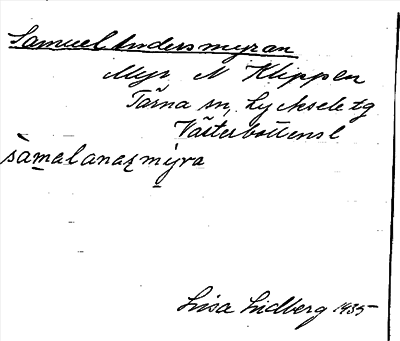 Samuel Andersmyran
Myr N Klippen
Tärna sn, Lycksele tg
Västerbottens l
sàmalanaʐmyra
Lisa Lidberg 1935